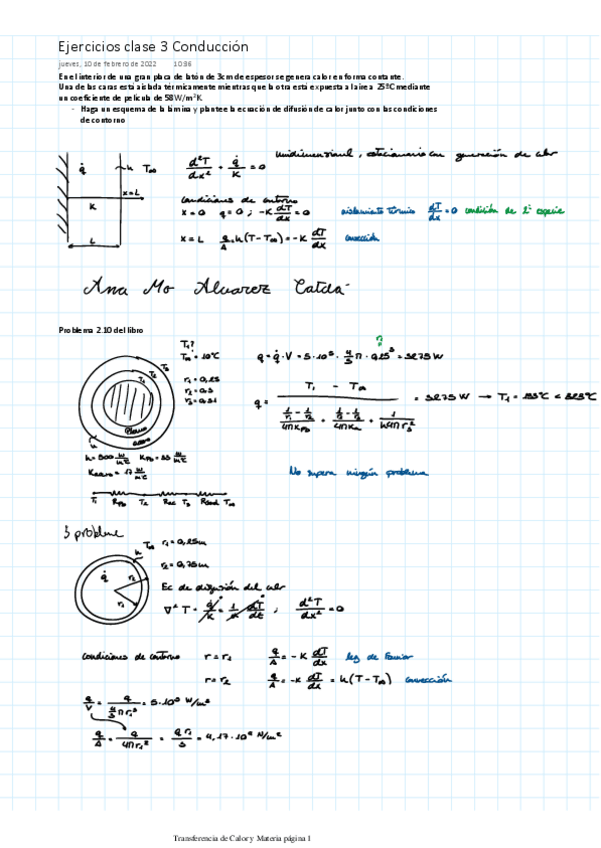 Ejercicios clase 3 Conducción
jueves, 10 de febrero de 2022 10:36
En el interior de una gran placa de latón de 3cm de espesor se genera calor en forma contante.
Una de las caras está aislada térmicamente mientras que la otra está expuesta a laire a 25ºC mediante
un coeficiente de película de 58W/m²K
- Haga un esquema de la lámina y plantee la ecuación de difusión de calor junto con las condiciones
de contorno
q̇ h T∞
x=L
K
L
d²T/dx² + q̇/K = 0 Unidimensional, estacionario con generación de calor
condiciones de contorno
x=0 q=0 ; -K dT/dx = 0 aislamiento térmico dT/dx = 0 condición de 2ª especie
x=L q/A = h(T-T∞) = -K dT/dx convección
Ana Mª Alvarez Catalá
Problema 2.10 del libro
T₁?
T∞ = 10ºC
r₁ = 0,25
r₂ = 0,3
r₃ = 0,31
T₁ T₂ T₃
plomo
acero
h
h = 500 W/m²ºC K_Pb = 35 W/mºC
K_acero = 17 W/mºC
T₁ R_Pb T₂ R_ac T₃ R_conv T∞
q = q̇·V = 5·10⁵ · 4/3 π · 0,25³ = 3275 W
?
q = (T₁ - T∞) / ((1/r₁ - 1/r₂)/(4πK_Pb) + (1/r₂ - 1/r₃)/(4πK_a) + 1/(h4πr₃²)) = 3275 W → T₁ = < 325ºC
No supera ningún problema
3 probleme
h T∞ r₁ = 0,25m
r₂ = 0,75m
q̇
r₁ r₂
Ec de difusión del calor
∇²T - q̇/K = 1/α dT/dt ; d²T/dx² = 0
condiciones de contorno r = r₁ q/A = -K dT/dx ley de Fourier
r = r₂ q/A = -K dT/dx = h(T-T∞) convección
q/V = q/(4/3 π r₁³) = 5·10⁵ W/m³
q/A = q/(4πr₁²) = q r₁/3 = 4,17·10⁴ W/m²
Transferencia de Calor y Materia página 1